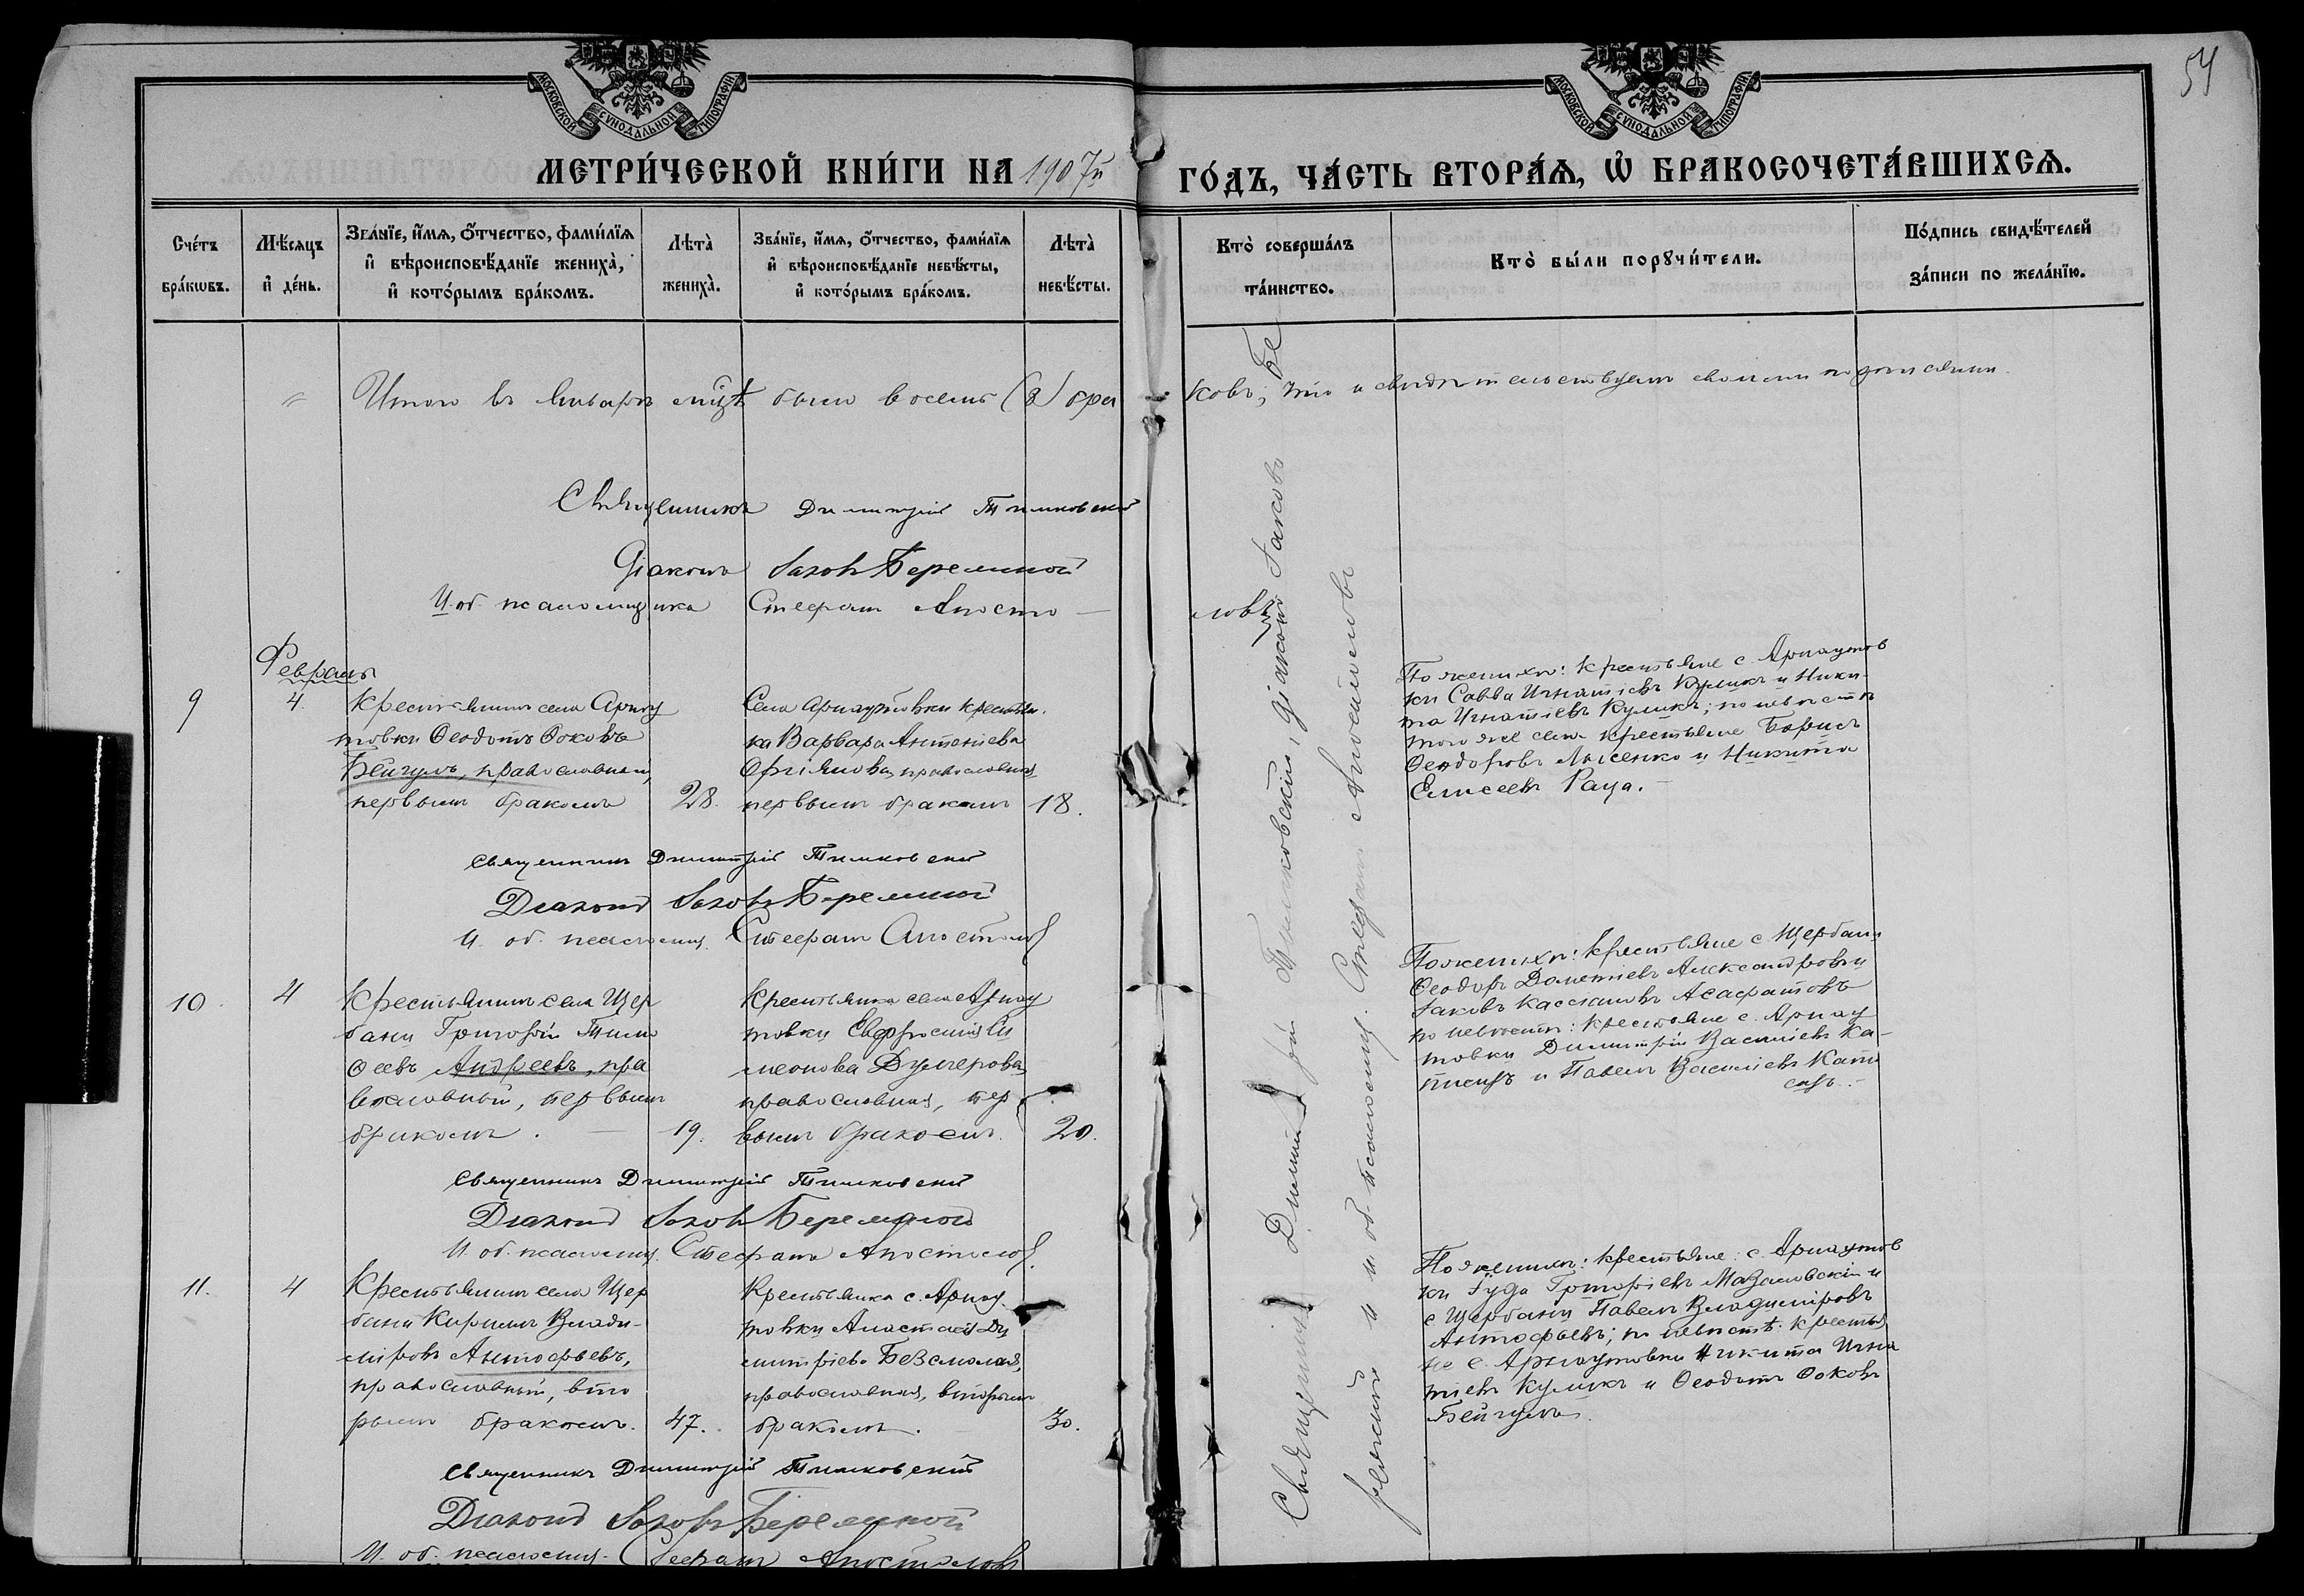 54
МОСКОВСКОЙ СѴНОДАЛЬНОЙ ТИПОГРАФІИ
МОСКОВСКОЙ СѴНОДАЛЬНОЙ ТИПОГРАФІИ
МЕТРИ́ЧЕСКОЙ КНИ́ГИ НА 1907й ГО́ДЪ, ЧА́СТЬ ВТОРА́Я, Ѡ БРАКОСОЧЕТА́ВШИХСЯ.
Сче́тъ бра́кѡвъ.
Мѣ́сяцъ и де́нь.
Зва́нїе, и́мя, о́тчество, фами́лїя и вѣроисповѣ́данїе жениха̀, и кото́рымъ бра́комъ.
Лѣта̀ жениха̀.
Зва́нїе, и́мя, о́тчество, фами́лїя и вѣроисповѣ́данїе невѣ́сты, и кото́рымъ бра́комъ.
Лѣта̀ невѣ́сты.
Кто̀ соверша́лъ та́инство.
Кто̀ бы́ли порꙋчи́тели.
По́дпись свидѣ́телей за́писи по жела́нїю.
Итого въ Январѣ мцѣ было восемь (8) бра
ковъ; что и свидѣтельствуемъ своими подписями.
Священникъ Димитрій Тимковскій
Діаконъ Іаковъ Беременной
И. об. псаломщика Стефанъ Апосто-
ловъ
Февраль
9
4
Крестьянинъ села Арнау
товки Ѳеодотъ Ѳоковъ
Бейгулъ, православный,
первымъ бракомъ
28.
Села Арнаутовки крестьян.
ка Варвара Антоніева
православная
первымъ бракомъ
18.
По женихѣ: крестьяне с. Арнаутов
ки Савва Игнатіевъ Куликъ и Ники-
та Игнатіевъ Куликъ; по невѣстѣ
того же села крестьяне Борисъ
Ѳеодоровъ Лысенко и Никита
Елисеевъ Раца.
Священникъ Димитрій Тимковскій
Діаконъ Іаковъ Беременной
И. об. псаломщ. Стефанъ Апостолов
10
4
Крестьянинъ села Щер
бани Григорій Тимо
ѳеевъ Андреевъ, пра
вославный, первымъ
бракомъ.
19.
Крестьянка села Арнау
товки Евфросинія Си
меонова
православная, пер
вымъ бракомъ.
20.
По женихѣ: крестьяне с. Щербани
Ѳеодоръ Дометіевъ Александровъ и
Іаковъ Кассіановъ
по невѣстѣ: крестьяне с. Арнау
товки Димитрій Василіевъ Ка-
и Павелъ Василіевъ
Священникъ Димитрій Тимковскій
Діаконъ Іаковъ Беременной
И. об. псаломщ. Стефанъ Апостолов.
11.
4
Крестьянинъ села Щер
бани Кириллъ Влади-
міровъ Антофьевъ,
православный, вто
рымъ бракомъ.
47.
Крестьянка с. Арнау.
товки Анастасія Ди
митріева
православная, вторымъ
бракомъ.
30.
По женихѣ: крестьяне: с. Арнаутов
ки Іуда Григоріевъ Мазаловскій и
с Щербани Павелъ Владиміровъ
Антофьевъ; по невѣстѣ: крестья
не с. Арнаутовки Никита Игна
тіевъ Куликъ и Ѳеодотъ Ѳоковъ
Бейгулъ.
Священникъ Димитрій Тимковскій
Діаконъ Іаковъ Беременной
И. об. псаломщ. Стефанъ Апостоловъ
Священникъ Димитрій Тимковскій, Діаконъ Іаковъ Бе
ременной и и. об. псаломщ. Стефанъ Апостоловъ